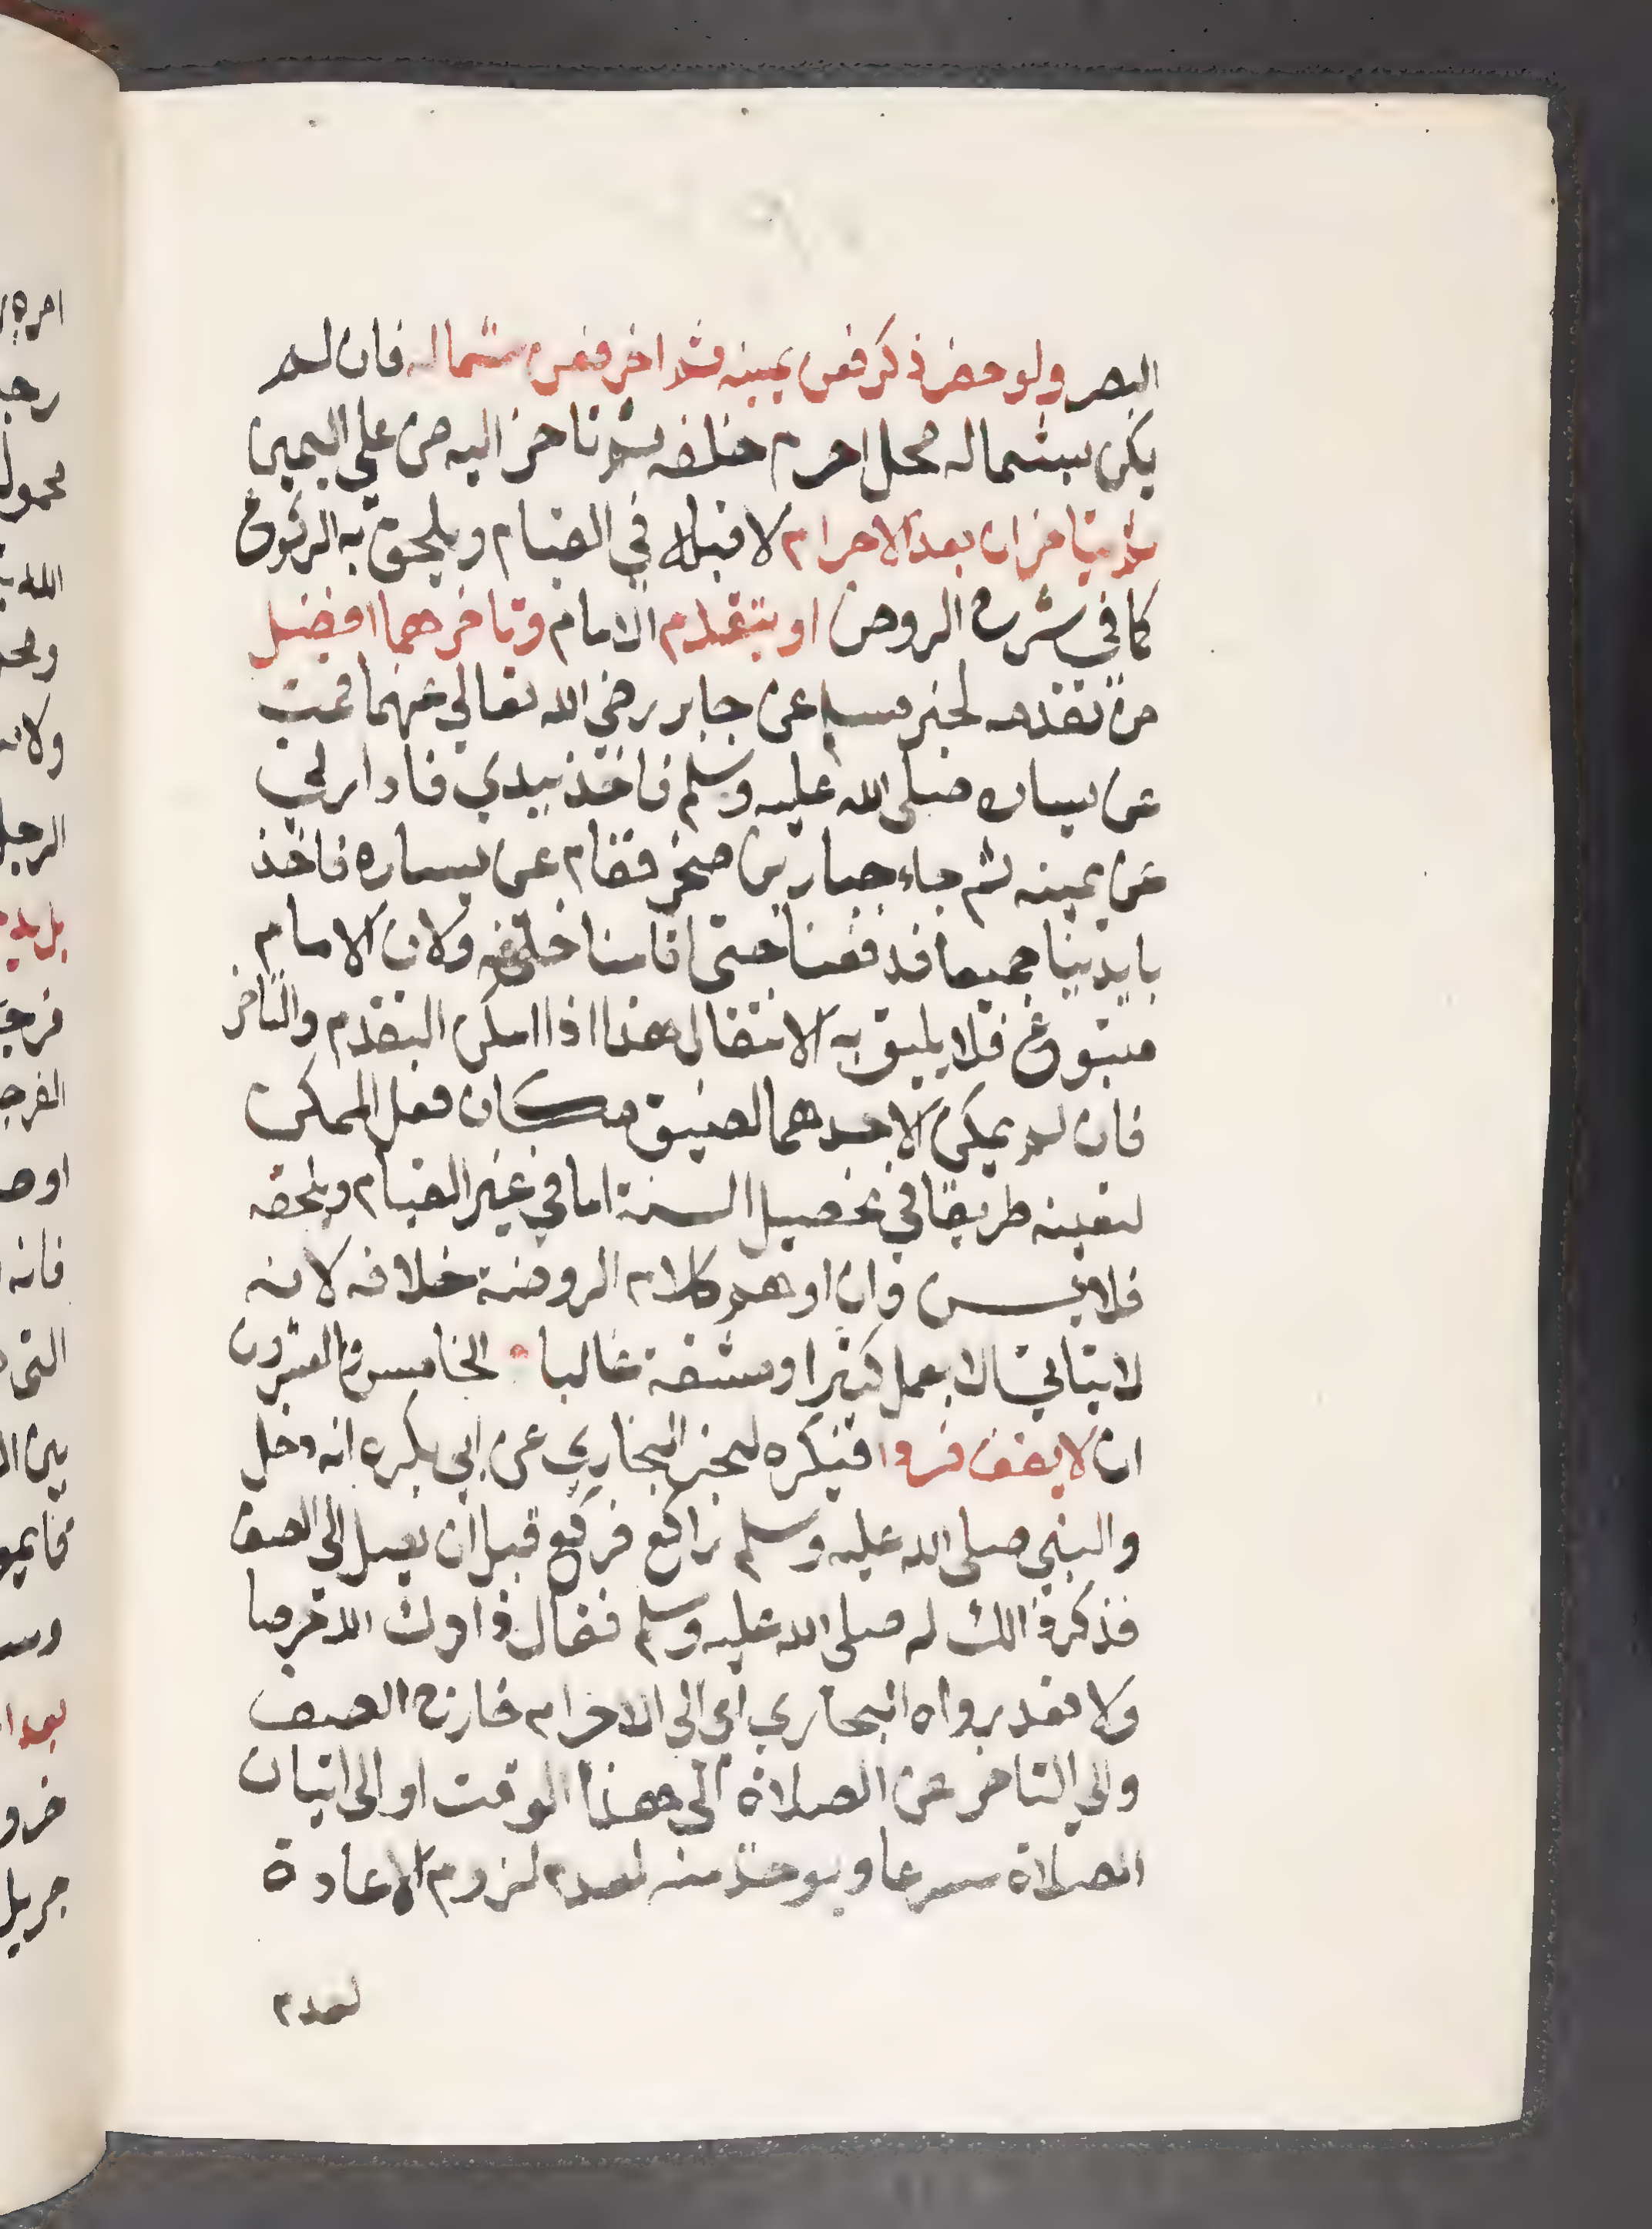 البصر ولو حضر ذكر فعن يمينه ثم اخر فعن شماله فان لم
يكن بشماله محل احرم خلفه ثم تاخر اليه من علي اليمين
ثم يتاخران بعد الاحرام لا قبله في القيام ويلحق به الركوع
كما في شرح الروض او يتقدم الامام وتاخرهما افضل
من تقدمه لخبر مسلم عن جابر رضي الله تعالي عنهما قمت
عن يساره صلى الله عليه وسلم فاخذ بيدي فادارني
عن يمينه ثم جاء جبار بن صخر فقام عن يساره فاخذ
بايدينا جميعا فدفعنا حتى اقامنا خلفه ولان الامام
متبوع فلا يليق به الانتقال هذا اذا امكن التقدم والتاخر
فان لم يمكن الا احدهما لضيق مكان فعل الممكن
لتعينه طريقا في تحصيل السنة اما في غير القيام ويلحقه
فلا يسن وان اوهم كلام الروضة خلافه لانه
لا يتاتي الا بعمل كثير او مشقة غالبا الخامس والعشرون
ان لا يقف فردا فيكره لخبر البخاري عن ابي بكره انه دخل
والنبي صلى الله عليه وسلم راكع فركع قبل ان يصل الى الصف
فذكر ذالك له صلى الله عليه وسلم فقال زادك الله حرصا
ولا تعد رواه البخاري اي الى الاحرام خارج الصف
والي التاخر عن الصلاة الى هذا الوقت او الى اتيان
الصلاة سرعا ويوخذ منه لعدم لزوم الاعادة
لعدم